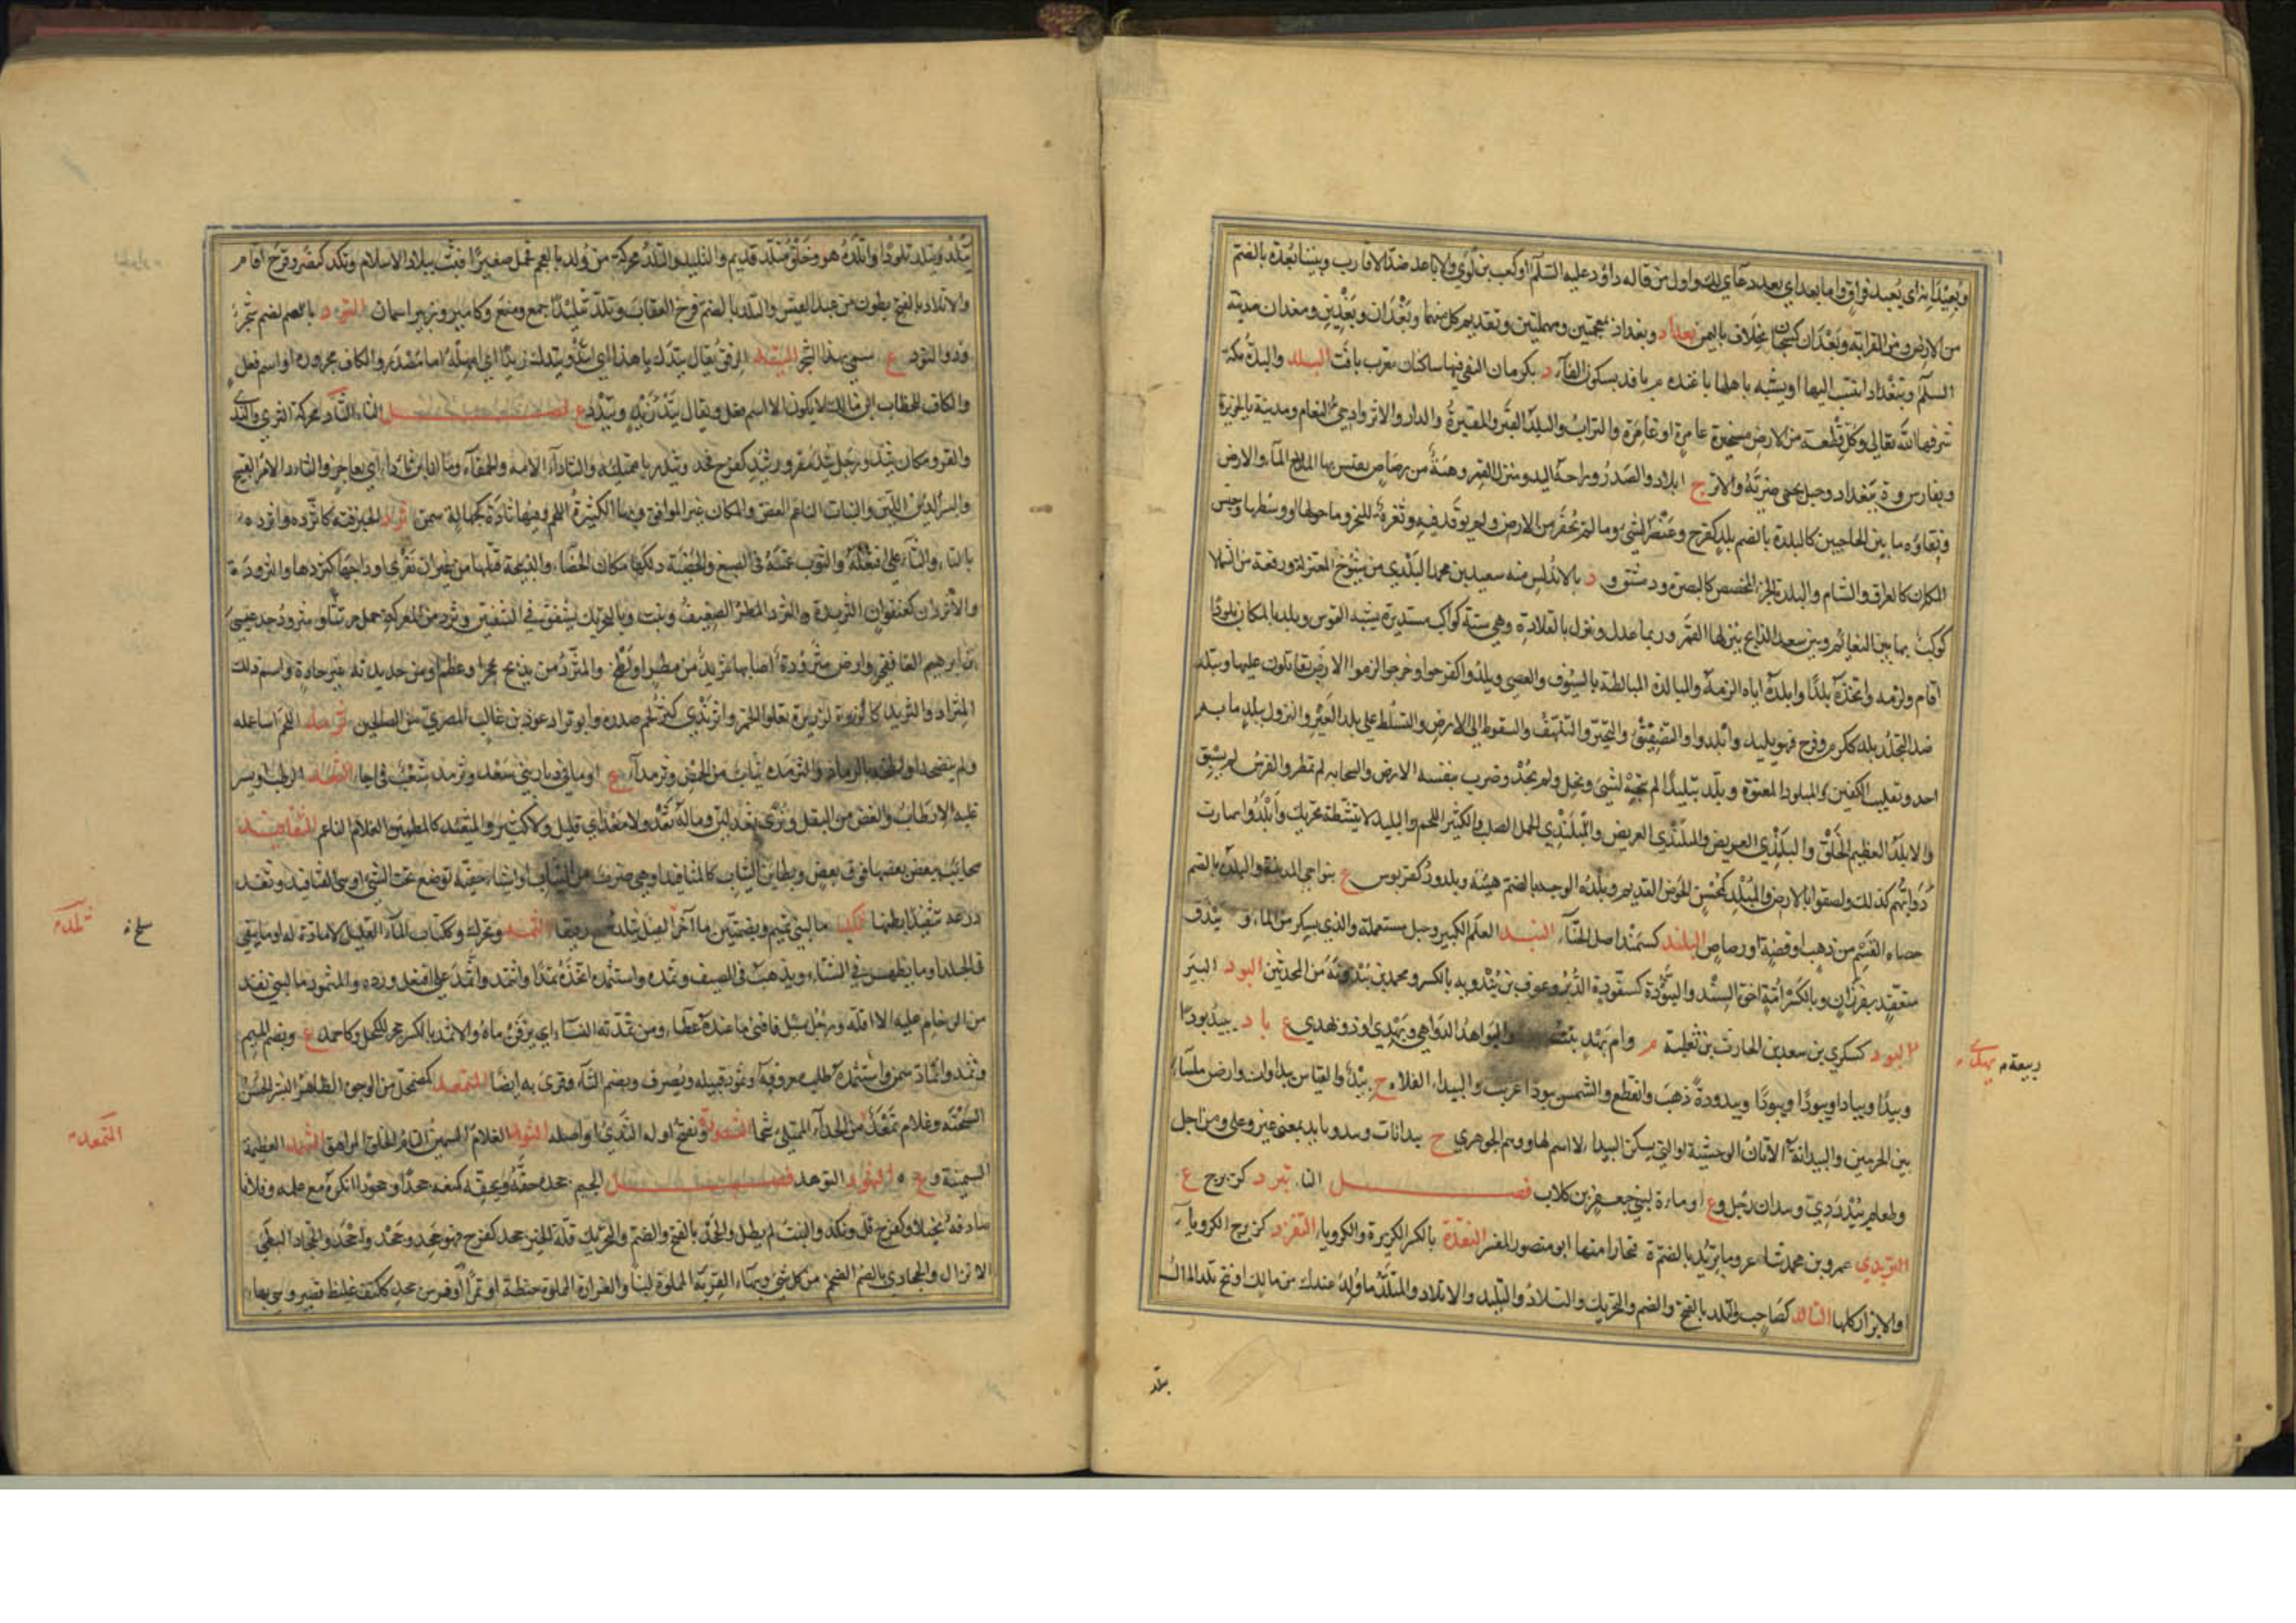 وبعيدانه اي يعيد نواق واما بعد اي بعد دعائي لك واول من قاله داود عليه السلم او كعب بن لؤي والاباعد ضد الاقارب وبيننا بعدة بالضم
من الارض ومن القرابة وبعدان كسحبان مخلاف باليمن بغداد وبغداذ بمعجمتين ومهملتين وتقديم كل منهما وبغدان وبغدين ومغدان مدينة
السلم وتبغداد انتسب اليها او يشبه باهلها بافد بسكون الفاء د بكرمان التقى فيها ساكنان معرب بافت البلد والبلدة مكة
شرفها الله تعالى وكل قطعة من الارض مستحيزة عامرة او غامرة والتراب والبلد القبر والمقبرة والدار والاثر وادحي النعام ومدينة بالجزيرة
وبفارس وة ببغداد وجبل بحمى ضرية والاثر ج ابلاد والصدر وراحة اليد ومنزل للقمر وهنة من رصاص يقيس بها الملاح الماء والارض
ونقاوة ما بين الحاجبين كالبلدة بالضم بلد كفرح وعنصر الشيء وما لم يحفر من الارض ولم يوقد فيه وثغرة النحر وما حولها او وسطها وجنس
المكان كالعراق والشام والبلدة الجزء المخصص كالبصرة ودمشق و د بالاندلس منه سعيد بن محمد البلدي من شيوخ المعتزلة ورقعة من السماء لا
كوكب بها بين النعائم وبين سعد الذابح ينزلها القمر وربما عدل ونزل بالقلادة وهي ستة كواكب مستديرة يشبه القوس وبلد بالمكان بلودا
اقام ولزمه واتخذه بلدا وابلده اياه الزمه والمبالدة المبالطة بالسيوف والعصي وبلدوا كفرحوا وخرجوا لزموا الارض يقاتلون عليها وتبلد
ضد التجلد بلد ككرم وفرح فهو بليد وابلدوا والتصفيق والتحير والتلهف والسقوط الى الارض والتسلط على بلد الغير والنزول ببلد ما به
احد وتقليب الكفين والمبلود المعتوه وبلد تبليدا لم يتجه لشيء وبخل ولم يجد وضرب بنفسه الارض والسحابة لم تمطر والفرس لم يسبق
والابلد العظيم الخلق والبلندي العريض والبلندى العريض والمبلندي الجمل الصلب والكثير اللحم والبليد لا ينشطه تحريك وابلدوا صارت
دوابهم كذلك ولصقوا بالارض والمبلد كمحسن الحوض القديم وبلدة الوجه بالضم هيئته وبلدود كقربوس ع بنواحي المدينة والبلدة بالضم
حصاة القسم من ذهب او فضة او رصاص البلند كسمند اصل الحناء البند العلم الكبير وحيل مستعملة والذي يسكر من الماء و يبذق
منعقد بفرزان وبالكسر امة اخت السند والبنودة كسفودة الدبر وعوف بن بندويه بالكسر ومحمد بن بندويه من المحدثين البود البئر
البود كسكري بن سعد بن الحارث بن ثعلبة م وام بهد بنت والبواهد الدواهي وبهدي او ذو بهدي ع باد يبيد بودا
وبيدا وبيادا وبيودا وبيدودة ذهب وانقطع والشمس بودا غربت والبيداء الفلاة ج بيد والقياس بيداوات وارض ملساء
بين الحرمين والبيدانة الاتان الوحشية او التي تسكن البيداء لا اسم لها ووهم الجوهري ح بيدانات وبيد وبايد بمعنى غير وعلى ومن اجل
وطعام بيد ردي وبيدان رجل وع او ماءة لبني جعفر بن كلاب فصل التاء تبرد كزبرج ع
التريدي عمرو بن محمد شاعر وما تريد بالضم ة بخارا منها ابو منصور المفسر التقدة بالكسر الكزبرة والكرويا التقرد كزبرج الكرويا
او الابزار كلها التالد كصاحب والتلد بالفتح والضم والتحريك والتلاد والتليد والاتلاد والمتلد ما ولد عندك من مالك او نتج تلد المال
يتلد
ربيعة بهدى
يتلد ويتلد تلودا واتلده هو وخلق متلد قديم والتليد والتلد محركة من ولد بالعجم فحمل صغيرا فنبت ببلاد الاسلام وتلد كنصر وفرح اقام
والاتلاد بالفتح بطون من عبد القيس والتلد بالضم فرخ العقاب وتلد تتليدا جمع ومنع وكامير وزبير اسمان التود باالضم شجر
وذو التود ع سمي بهذا الشجر التيد الرفق يقال تيدك يا هذا اي اتئد وتيدك زيدا اي امهله اما مصدر والكاف مجرورة او اسم فعل
والكاف للخطاب ابن مالك لا يكون الا اسم فعل ويقال تيد زيد وتيدد ع فصل الثاء الثأد محركة الثرى والندى
والقر ومكان ثئد ورجل ثئد مقرور وثئد كفرح فخذ ثئدة ريا ممتلئة والثأداء الامة والحمقاء وما انا ابن ثأداء اي بعاجز والثأد الامر القبيح
والبسر اللين واللين والنبات الناعم الغض والمكان غير الموافق وبهاء الكثيرة اللحم وفيها ثآدة كجهالة سمن ثرد الخبز فته كاثرده واتثرده
بالتاء والثاء على افتعله والثوب غمسه في الصبغ والخصية دلكها مكان الخصاء والذبيحة قتلها من غير ان تفرى اوداجها كثردها والثرودة
والاثردان كعنفوان الثريدة والثرد المطر الضعيف ونبت وبالتحريك تشقق في الشفتين وثرد من المعركة حمل مرتثا ومثرود جد عيسى
بن ابرهيم الغافقي وارض مثرودة اصابها ثريد من مطر اي لطخ والمثرد من يذبح بحجر او عظم او من حديدته غير حادة واسم ذلك
المثراد والثريد كالذروة لزيرة تعلو الخمر واثرندى كثر لحم صدره وابو ثراد عوذ بن غالب المصري من الصالحين ثرمد اللحم اساء عمله
ولم ينضجه او لطخه بالرماد والثرمدة نبات من الحمض وثرمداء ع او ماء في ديار بني سعد وثرمد شعب في اجا الثعد الرطب او بسر
غلبه الارطاب والغض من البقل وثرى ثعد لين وماله ثعد ولا معد اي قليل ولا كثير والمثعد كالمطمئن الغلام الناعم المثفافيد
سحائب بيض بعضها فوق بعض وبطائن الثياب كالمثافيد او هي ضرب من الثياب او اشياء خفية توضع تحت الشيء او هي الفثافيد وثفد
درعه تثفيدا بطنها ثكد ماء لبني تميم وبضمتين ماء آخر الثمد ويحرك وككتاب الماء القليل لا مادة له او ما يبقى
في الجلد او ما يظهر في الشتاء ويذهب في الصيف وثمده واستثمده اتخذه ثمدا واثتمد واثمد على افتعل ورده والمثمود ماء لبني نفد
من الزحام عليه الا اقله ورجل سئل فافنى ما عنده عطاء ومن ثمدته النساء اي نزفن ماءه والاثمد بالكسر حجر للكحل وكاحمد ع وبضم الميم
وثمد واثماد سمن واستثمده طلب معروفه وثمود قبيلة ويصرف وبضم الثاء وقرئ به ايضا المثمعد كمضمحل من الوجوه الظاهر البشرة الحسن
السحنة وغلام ثمعد من الجداء الممتلئ شحما الثندوة ويفتح اوله الثدي او اصله الثوهد الغلام السمين التام الخلق المراهق الثهمد العظيمة
السمينة وع الثهود الثوهد فصل الجيم جحده حقه وبحقه كمنعه جحدا وجحودا انكره مع علمه وفلانا
صادفه بخيلا وكفرح قل ونكد والنبت لم يطل والجحد بالفتح والضم والتحريك قلة الخير جحد كفرح فهو جحد وجحد واجحد والجحاد البطي
الانزال والجحادي بالضم الضخم من كل شيء وبهاء القربة المملوة لبنا والغرارة المملوة حنطة او تمرا وفرس جحد ككتف غليظ قصير وهي بهاء
ثلده
صح
التمعد